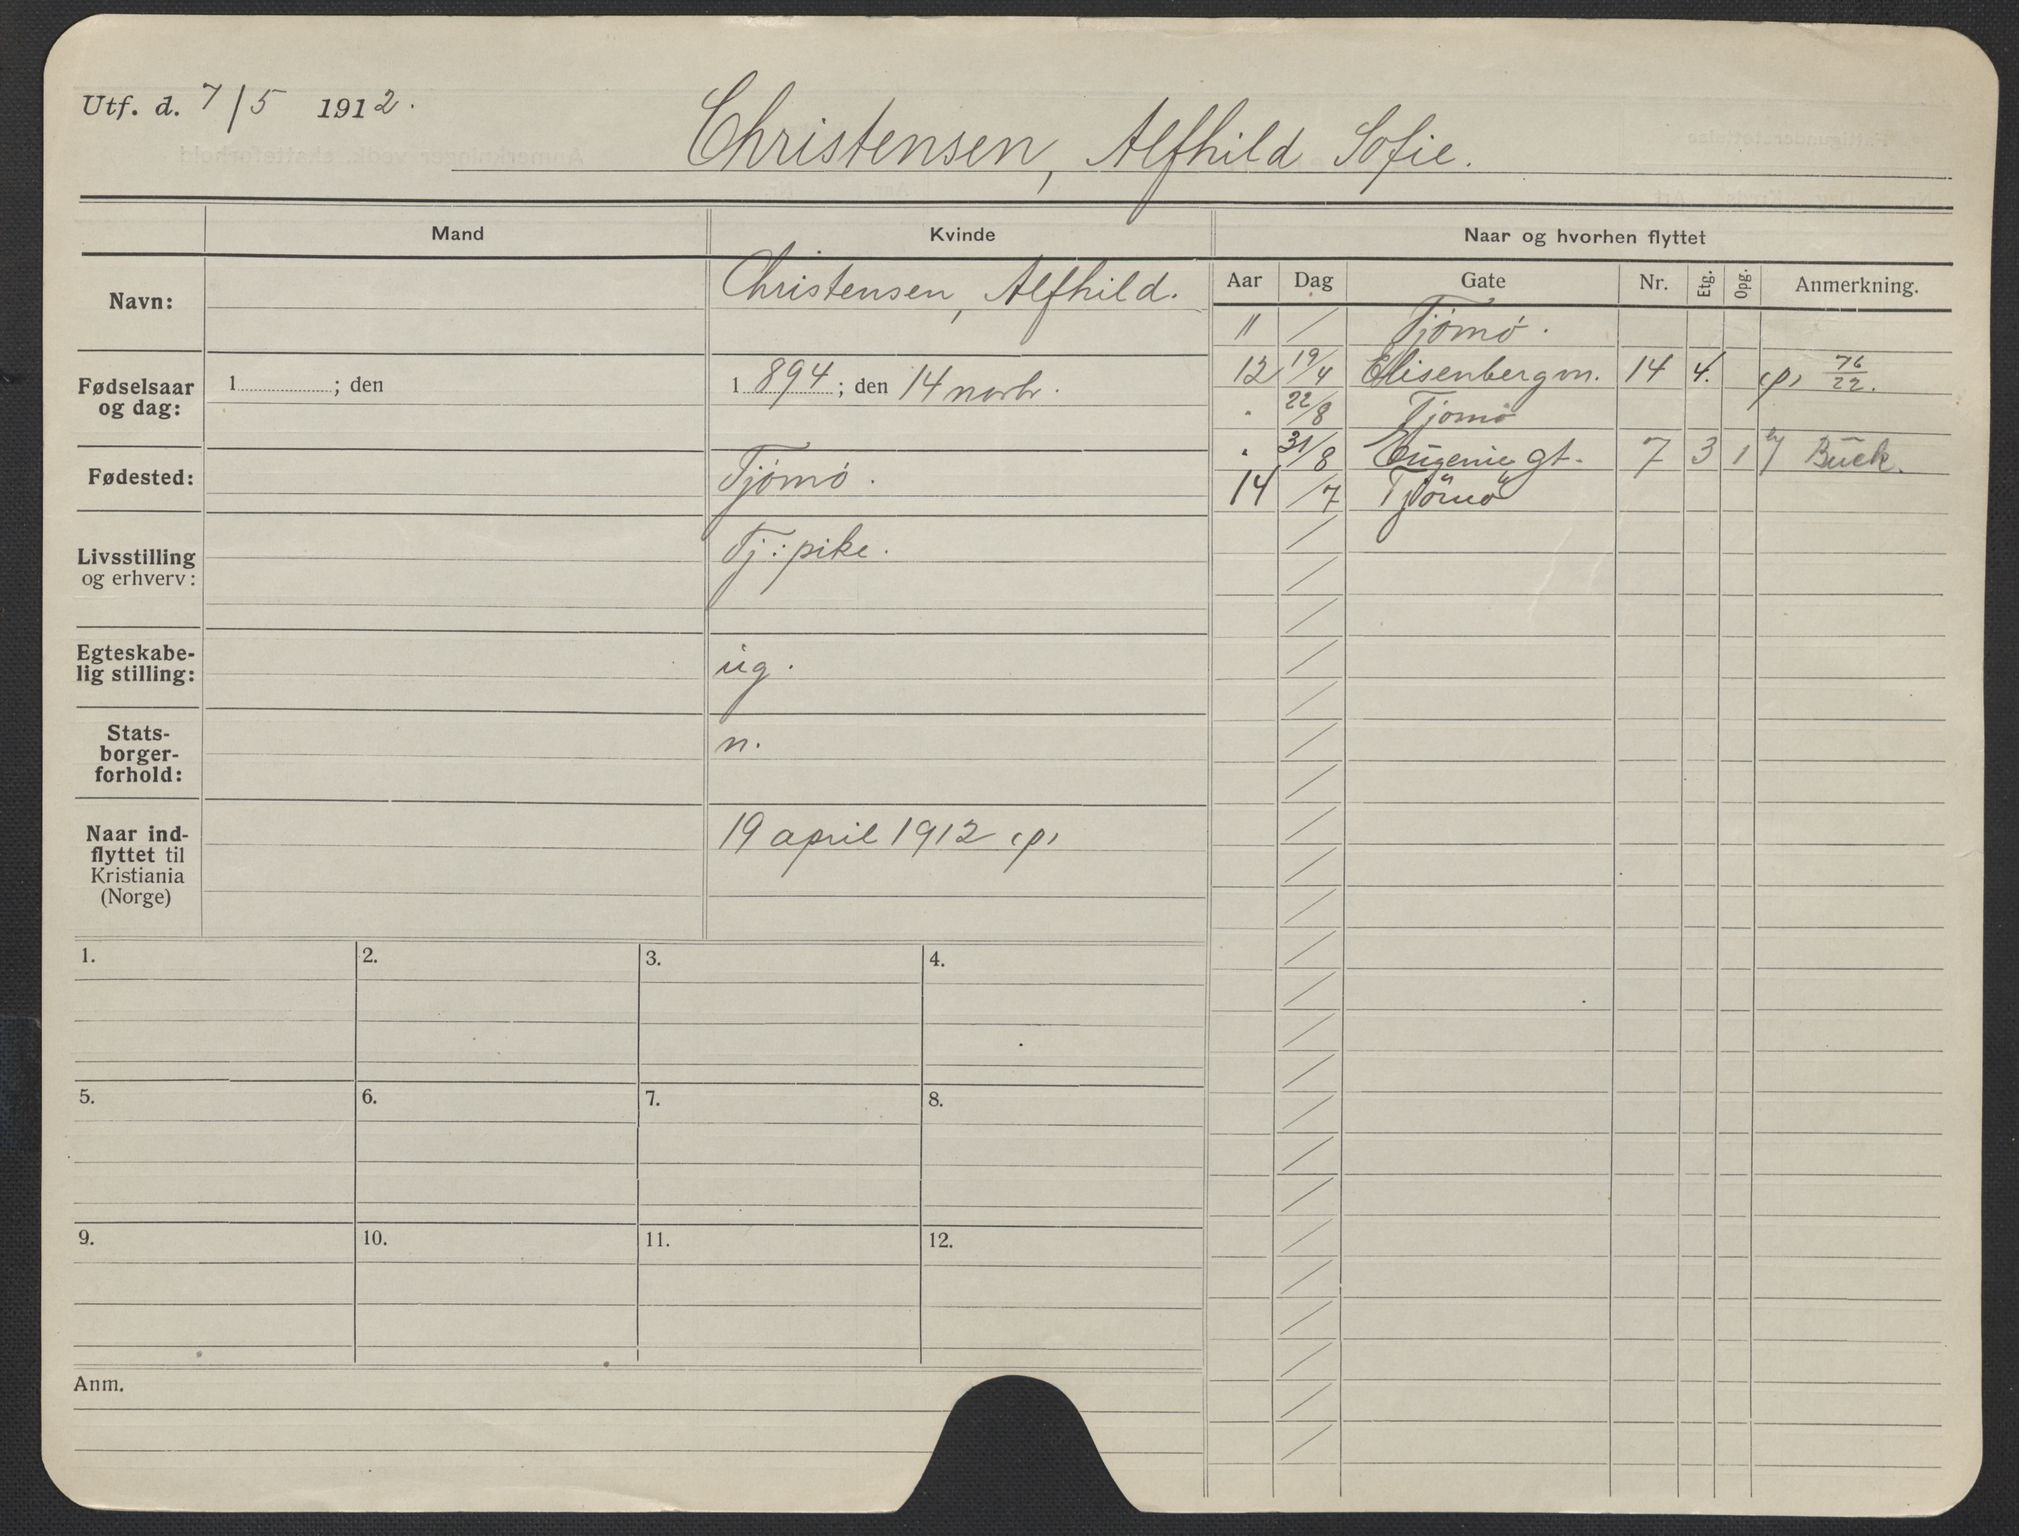 Utf. d. 7/5 1912.
Christensen, Alfhild Sofie.
Mand
Kvinde
Naar og hvorhen flyttet
Navn:
Christensen, Alfhild.
Fødselsaar
og dag:
1 ; den
1 894 ; den 14 novbr.
Fødested:
Tjømø.
Livsstilling
og erhverv:
Tj: pike.
Egteskabe-
lig stilling:
ug.
Stats-
borger-
forhold:
n.
Naar ind-
flyttet til
Kristiania
(Norge)
19 april 1912 (p)
Aar Dag Gate Nr. Etg. Opg. Anmerkning.
11 / Tjømø.
12 19/4 Elisenbergvn. 14 4. (p) 76/22.
" 22/8 Tjømø
" 31/8 Eugenie gt. 7 3 1 Buck.
14 /7 Tjømø
1. 2. 3. 4.
5. 6. 7. 8.
9. 10. 11. 12.
Anm.